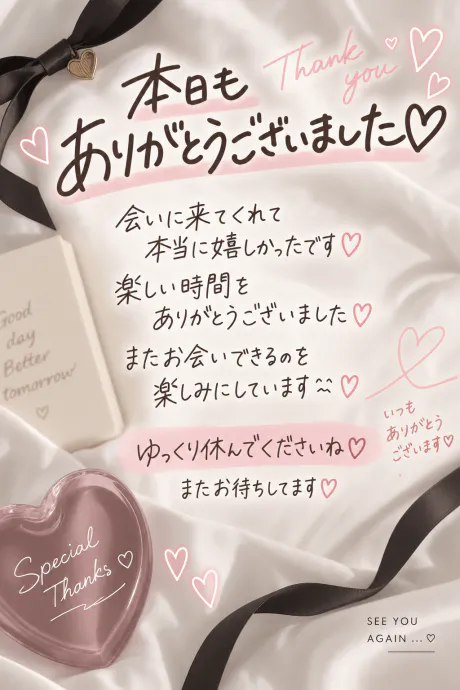 Thank
you
本日も
ありがとうございました♡
会いに来てくれて
本当に嬉しかったです♡
楽しい時間を
ありがとうございました♡
またお会いできるのを
楽しみにしています〰♡
Good
day
Better
tomorrow
♡
いつも
ありがとう
ございます♡
ゆっくり休んでくださいね♡
またお待ちしてます♡
Special
Thanks ♡
SEE YOU
AGAIN ... ♡